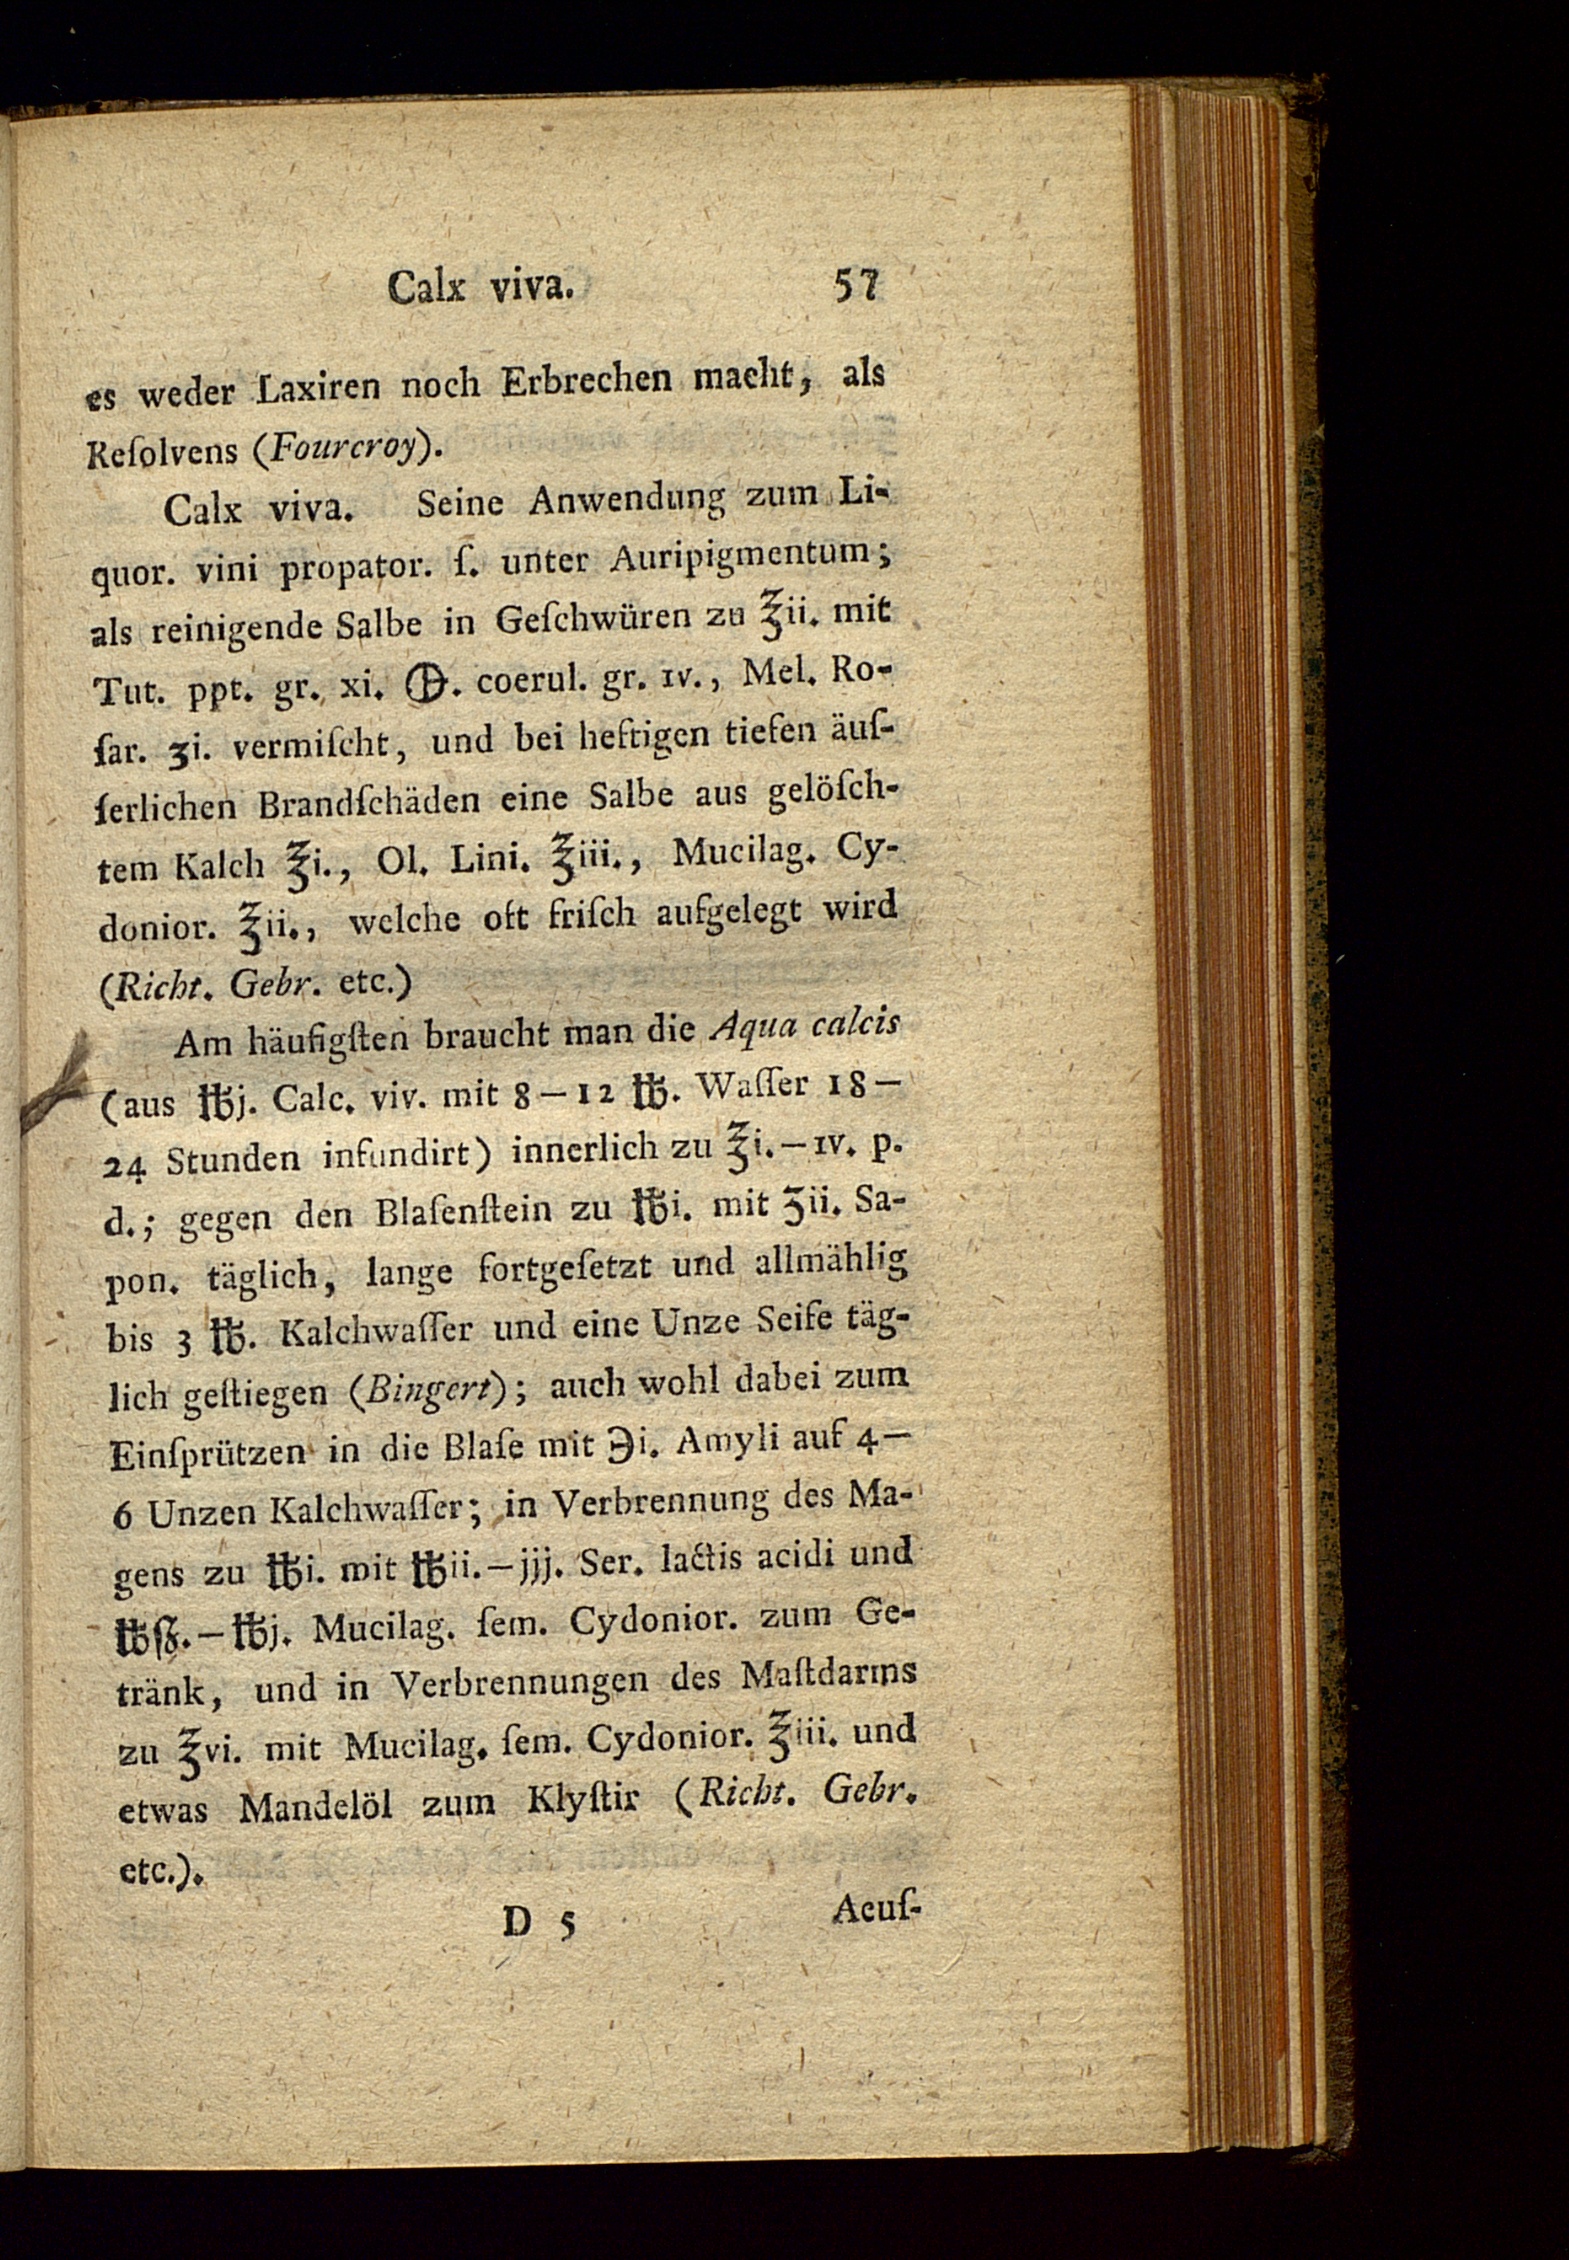 Calx viva. 57
es weder Laxiren noch Erbrechen macht, als
Reſolvens (Fourcroy).
Calx viva. Seine Anwendung zum Li-
quor. vini propator. ſ. unter Auripigmentum;
als reinigende Salbe in Geſchwüren zu ℥ii. mit
Tut. ppt. gr. xi. 🜨. coerul. gr. ıv., Mel. Ro-
ſar. ʒi. vermiſcht, und bei heftigen tiefen äuſ-
ſerlichen Brandſchäden eine Salbe aus gelöſch-
tem Kalch ℥i., Ol. Lini. ℥iii., Mucilag. Cy-
donior. ℥ii., welche oft friſch aufgelegt wird
(Richt. Gebr. etc.)
Am häufigſten braucht man die Aqua calcis
(aus ℔j. Calc. viv. mit 8—12 ℔. Waſſer 18—
24 Stunden infundirt) innerlich zu ℥i.—ıv. p.
d.; gegen den Blaſenſtein zu ℔i. mit ʒii. Sa-
pon. täglich, lange fortgeſetzt und allmählig
bis 3 ℔. Kalchwaſſer und eine Unze Seife täg-
lich geſtiegen (Bingert); auch wohl dabei zum
Einſprützen in die Blaſe mit ℈i. Amyli auf 4—
6 Unzen Kalchwaſſer; in Verbrennung des Ma-
gens zu ℔i. mit ℔ii.—jjj. Ser. lactis acidi und
℔ſß.—℔j. Mucilag. ſem. Cydonior. zum Ge-
tränk, und in Verbrennungen des Maſtdarms
zu ℥vi. mit Mucilag. ſem. Cydonior. ℥iii. und
etwas Mandelöl zum Klyſtir (Richt. Gebr.
etc.).
D 5 Aeuſ-